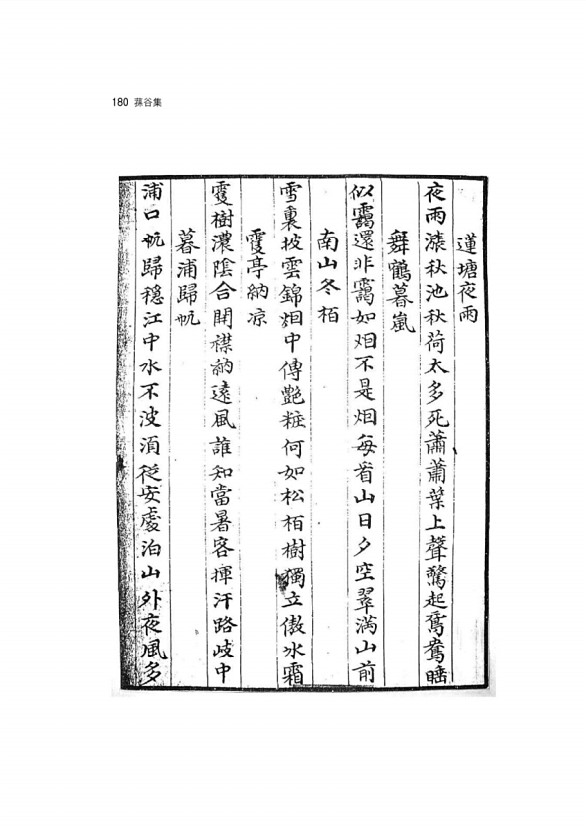 180 蓀谷集
蓮塘夜雨
夜雨漲秋池秋荷太多死蕭蕭葉上聲驚起鴛鴦睡
舞鶴暮嵐
似靄還非靄如烟不是烟每看山日夕空翠滿山前
南山冬栢
雪裏披雲錦烟中傳艶粧何如松栢樹獨立傲氷霜
霞亭納凉
霞樹濃陰合開襟納遠風誰知當暑客揮汗路岐中
暮浦歸帆
浦口帆歸穩江中水不波須從安處泊山外夜風多